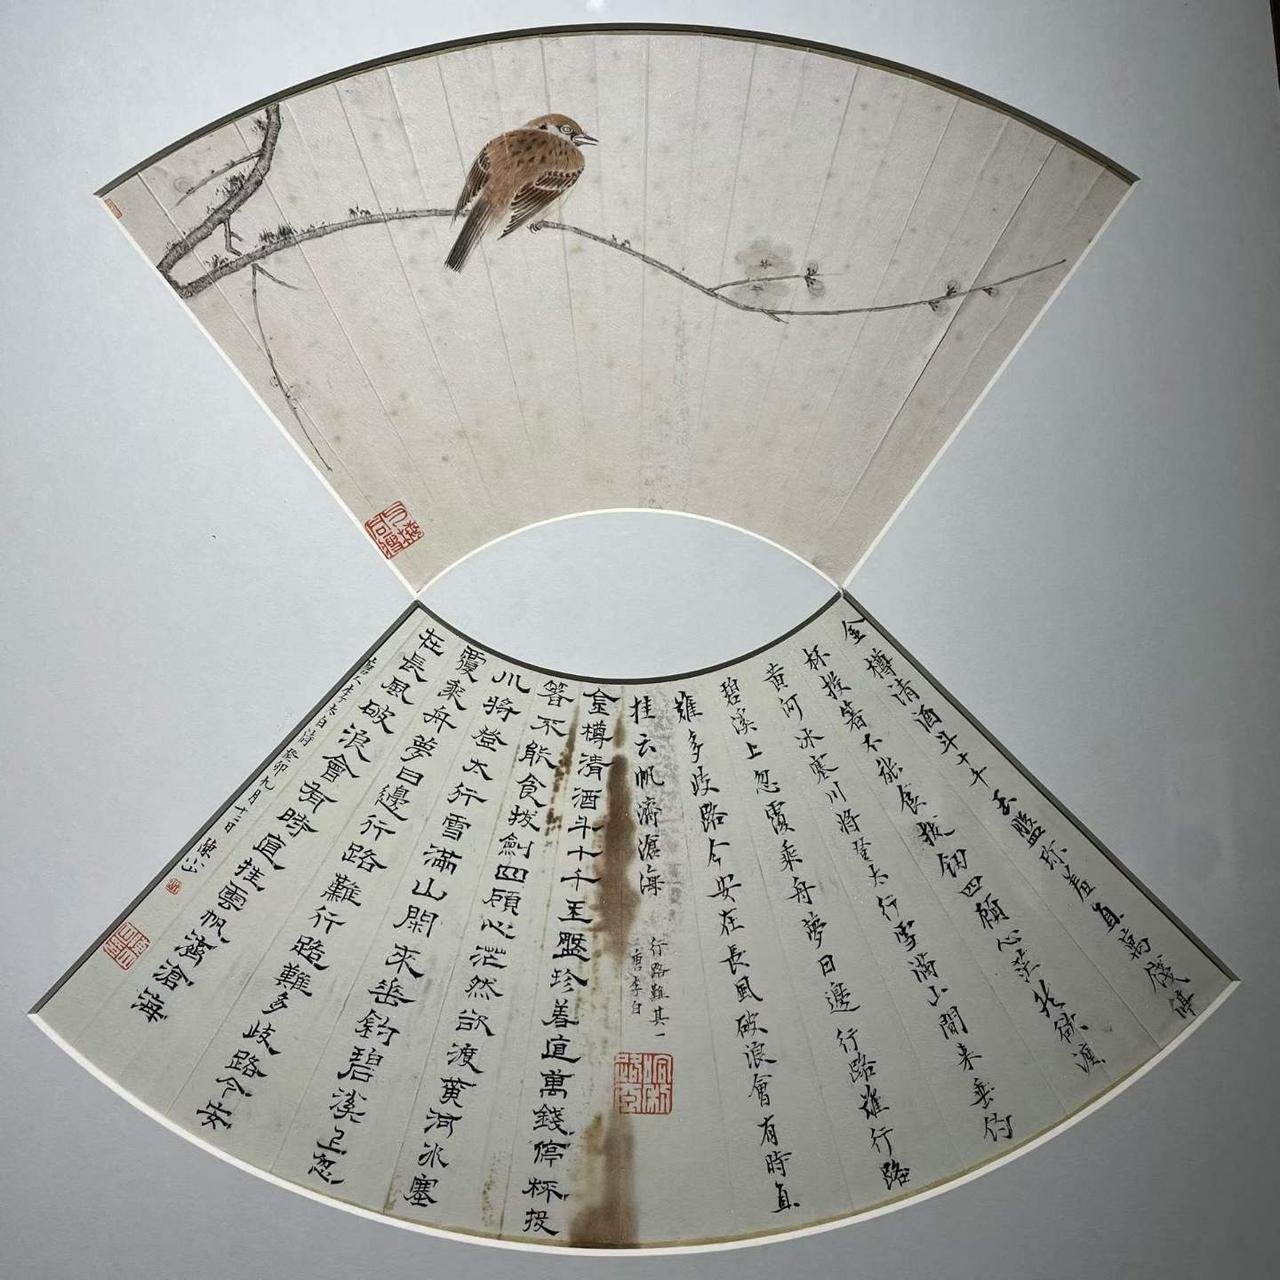 金樽清酒斗十千玉盤珍羞直萬錢停
杯投箸不能食拔劍四顧心茫然欲渡
黄河冰塞川將登太行雪滿山閒來垂釣
碧溪上忽覆乘舟夢日邊行路難行路
難多歧路今安在長風破浪會有時直
挂云帆濟滄海
行路難其一
唐李白
金樽清酒斗十千玉盤珍羞直萬錢停杯投
箸不能食拔劍四顧心茫然欲渡黄河冰塞
川將登太行雪滿山閑來垂釣碧溪上忽
覆乘舟夢日邊行路難行路難多歧路今安
在長風破浪會有時直挂雲帆濟滄海
唐人李太白詩癸卯九月十二日